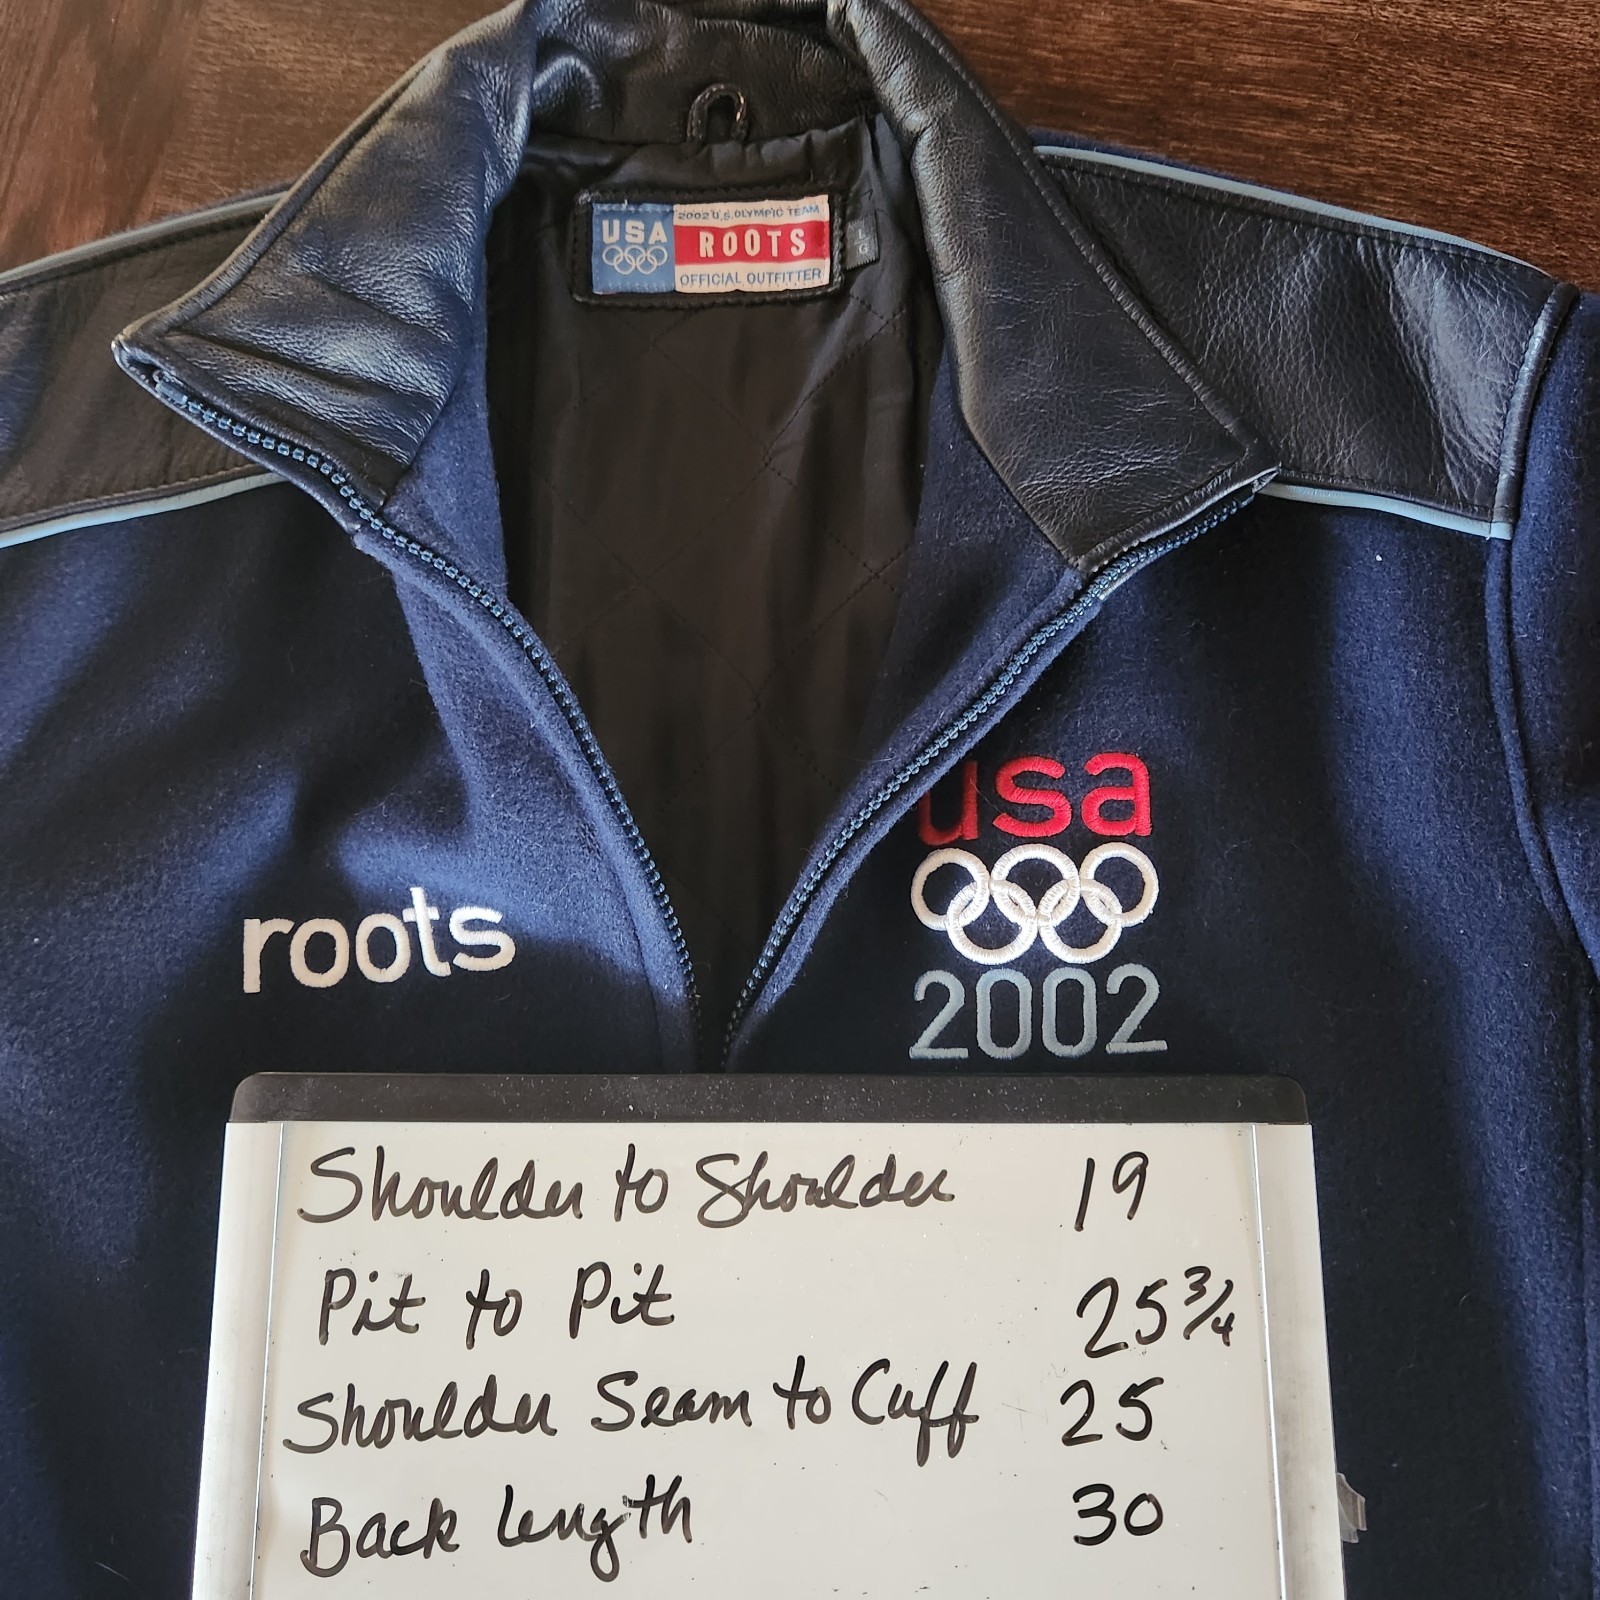 2002 U.S. OLYMPIC TEAM
USA
ROOTS
OFFICIAL OUTFITTER
LG
usa
roots
2002
Shoulder to Shoulder 19
Pit to Pit 25 3/4
Shoulder Seam to Cuff 25
Back Length 30